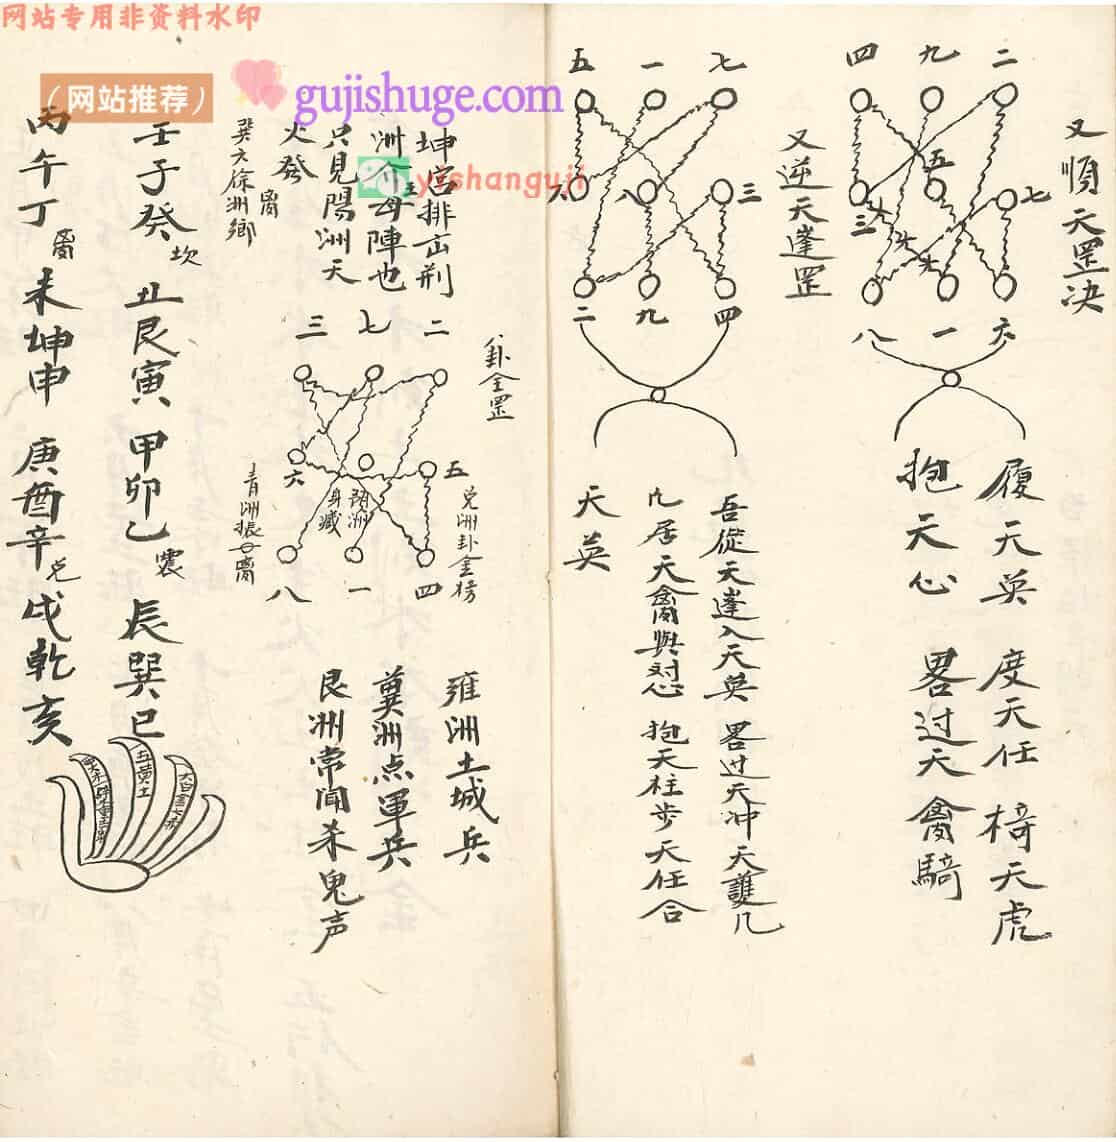 网站专用非资料水印
（网站推荐）
gujishuge.com
yishanguji
又順天罡决
四 九 二
三 五 七
八 一 六
履天英 度天任 椅天虎
抱天心 畧过天禽騎
又逆天蓬罡
五 一 七
六 八 三
二 九 四
吾從天蓬入天英 畧过天冲 天護几
几居天禽與对心 抱天柱步天任合
天英
坤宮排示荆
洲
母陣也
只見陽洲天
火發
巽六徐洲鄉
卦全罡
二
七
三
六
五
八 一 四
兑洲卦金榜
身藏
青洲振
雍洲土城兵
冀洲点軍兵
艮洲常闻杀鬼声
壬子癸坎 丑艮寅 甲卯乙震 辰巽巳
丙午丁 未坤申 庚酉辛兑 戌乾亥
五黄土